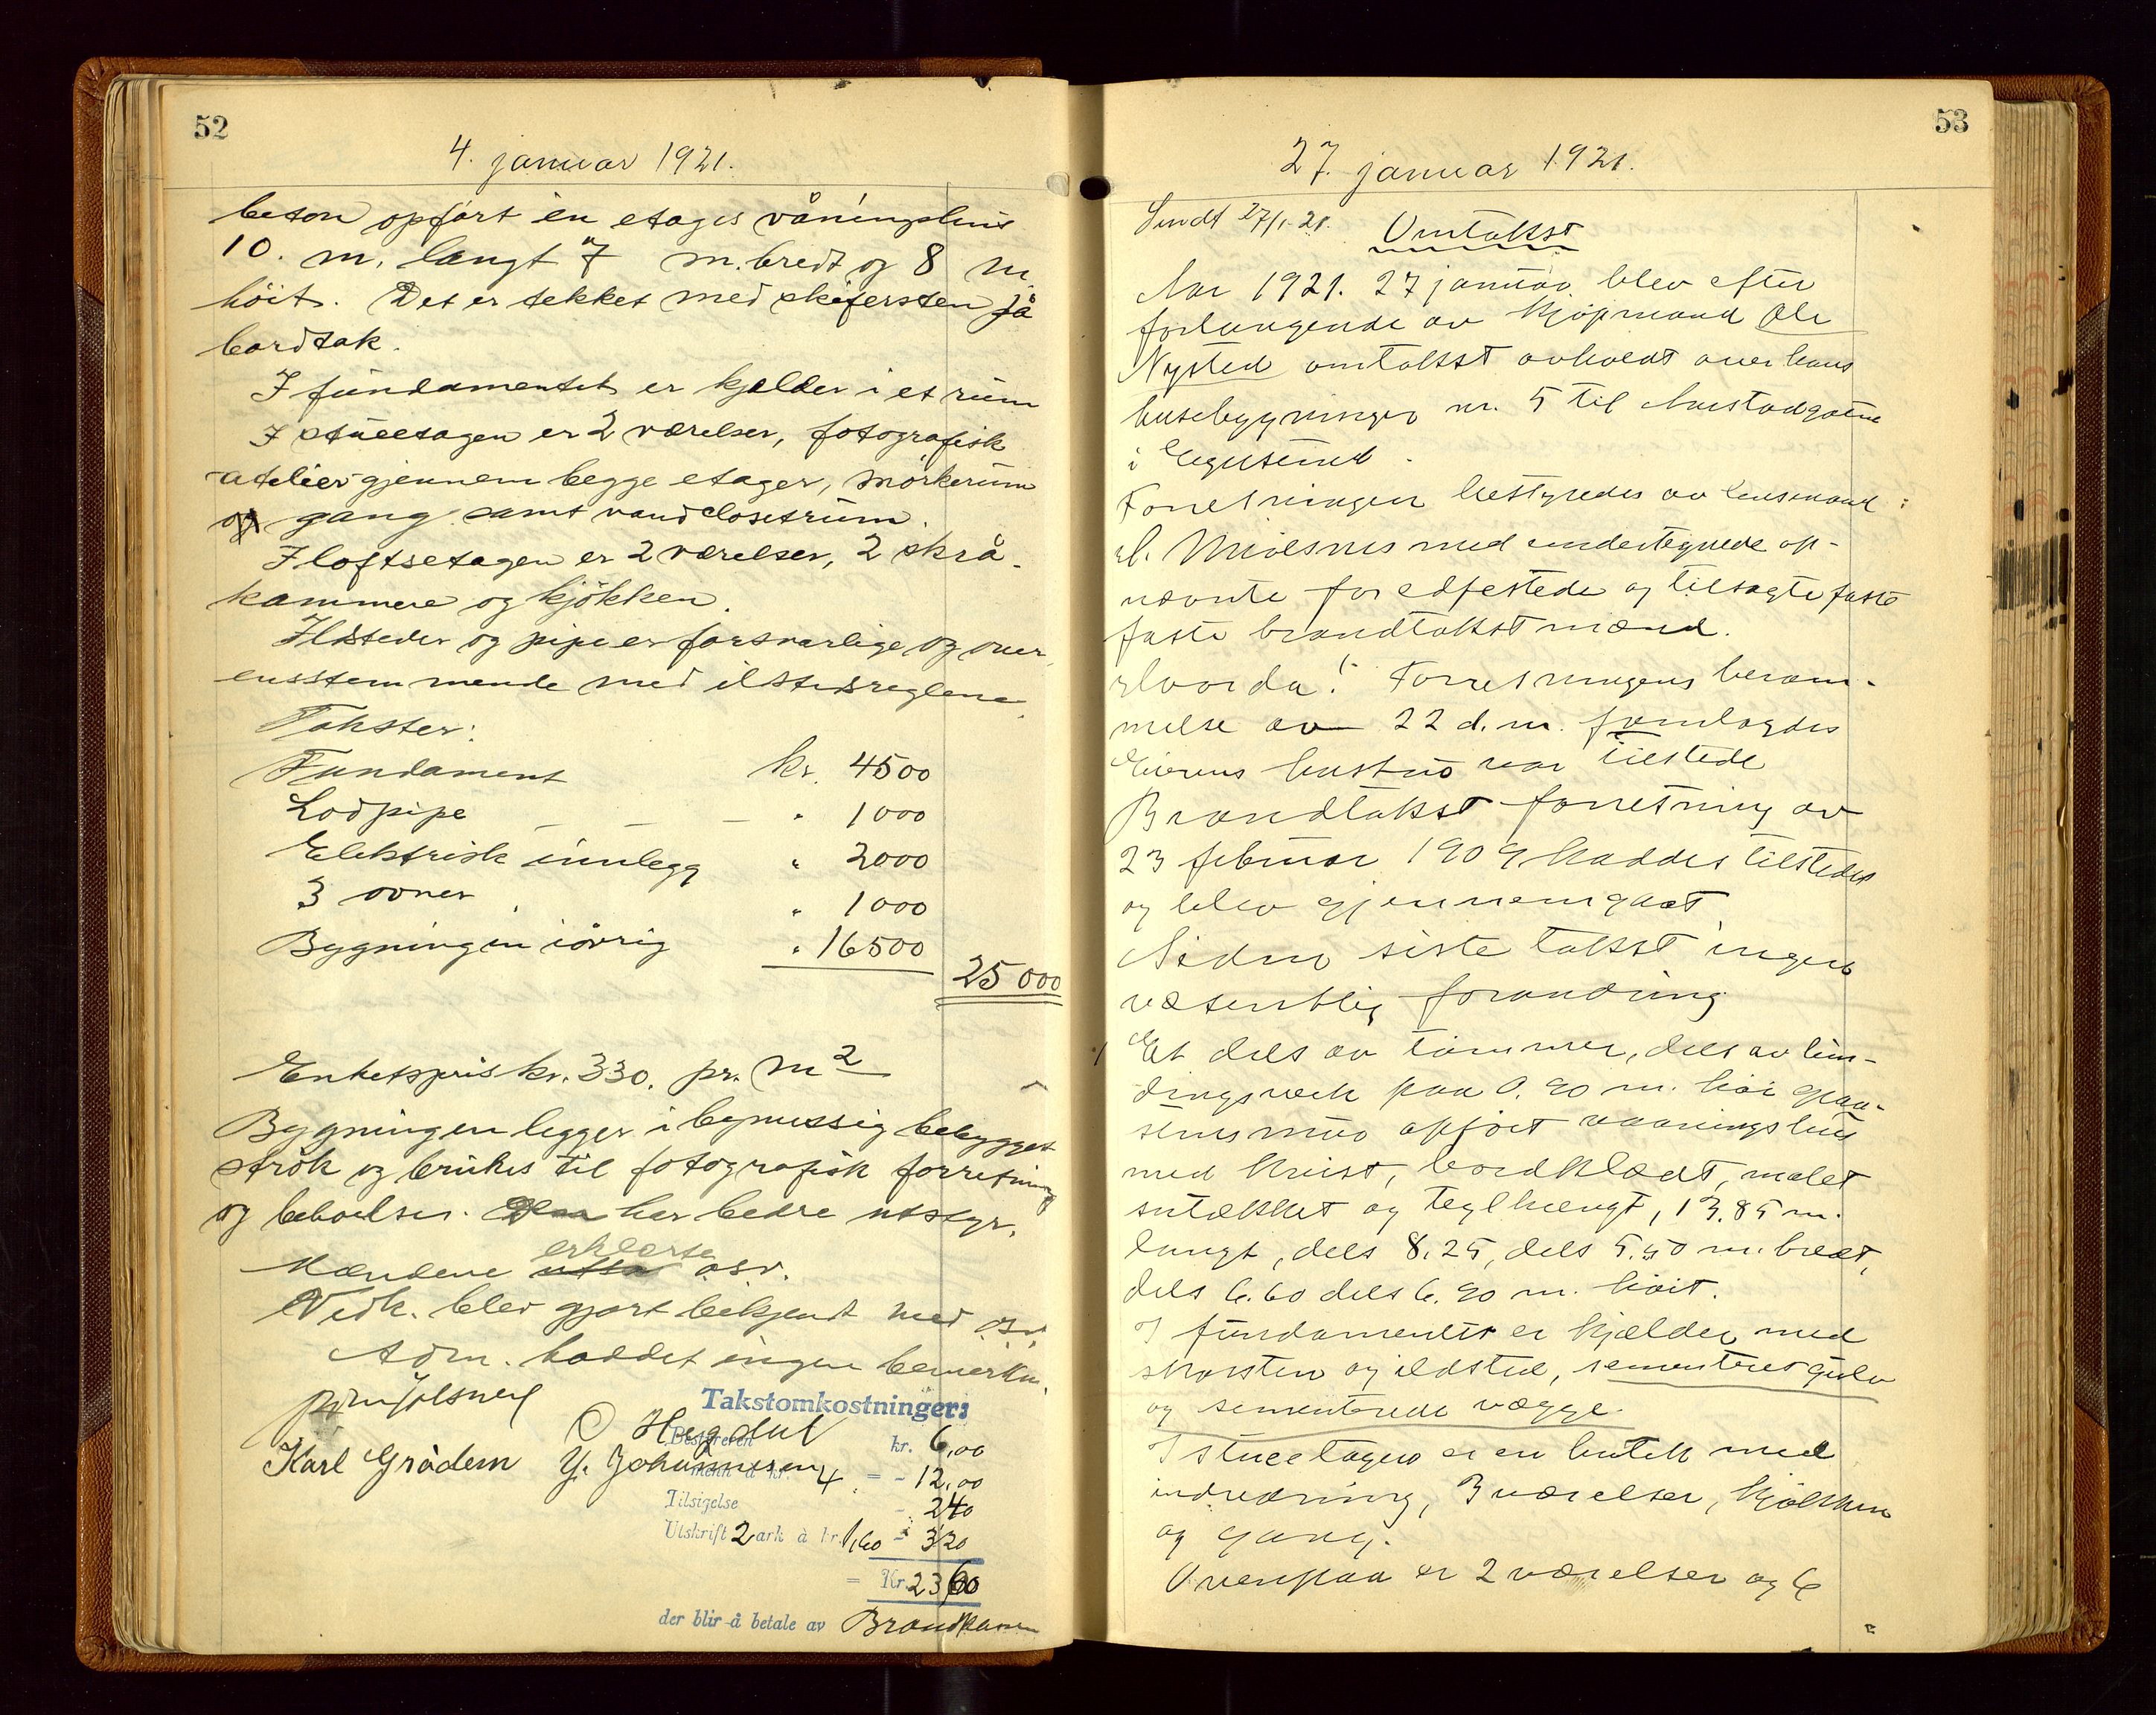 52
4. januar 1921.
beton opført en etages våningshus
10. m. langt 7 m. bredt og 8 m.
höit. Det er tekket med skifersten på
bordtak.
I fundamentet er kjelder i et rum
I stueetagen er 2 værelser, fotografisk
atelier gjennem begge etager, mörkerum
og gang samt vandclosetrum.
I loftsetagen er 2 værelser, 2 skrå-
kammere og kjökken.
Ildsteder og pipe er forsvarlige og over
ensstemmende med ilstedsreglene.
Takster:
Fundament kr. 4500
Lodpipe — — — " 1000
Elektrisk innlegg " 2000
3 ovner " 1000
Bygningen iövrig " 16500
25 000
Enhetspris kr. 330. pr. m2
Bygningen legger i bymessig bebygget
strök og brukes til fotografisk forretning
og beboelse. Den har bedre utstyr.
erklærte
Mændene osv.
Vedk. blev gjort bekjendt med osv.
Adm. hadde ingen bemerkn.
Takstomkostninger:
O Hegdal
Bestyreren kr. 6,00
Karl Grådem Y. Johannesen
menn à kr. 4 = - 12,00
Tilsigelse - 240
Utskrift 2 ark à kr. 1,60 - 320
= Kr. 23 60
der blir å betale av Brandkassen
53
27. januar 1921.
Sendt 27/1-21.
Omtakst
Aar 1921. 27 januar blev efter
forlangende av kjøpmand Ole
Nysted omtakst avholdt over hans
husebygninger nr. 5 til Aarstadgaten
i Egersund.
Forretningen bestyredes av lensmand
Mjølsnes med undertegnede op-
nævnte for edfestede og tilsagte faste
faste brandtakstmænd.
Hvorda! Forretningens beram-
melse av 22 d.m. fremlagdes
Eierens hustru var tilstede
Brandtakst forretning av
23 februar 1909 haddes tilstede
og blev gjennemgaat.
Siden siste takst ingen
væsentlig forandring
Et dels av tømmer, dels av bin-
dingsverk paa 0.90 m. høi graa-
stensmur opført vaaningshus
med kvist, bordklædt, malet
sutækket og teglhængt, 13.85 m.
langt, dels 8.25, dels 5.50 m. bredt,
dels 6.60 dels 6.90 m. høit.
I fundamentet er kjælder med
skorsten og ildsted, sementeret gulv
og sementerede vægge.
I stueetagen er en butik med
indredning, 3 værelser, kjøkken
og gang.
Ovenpaa er 2 værelser og 6